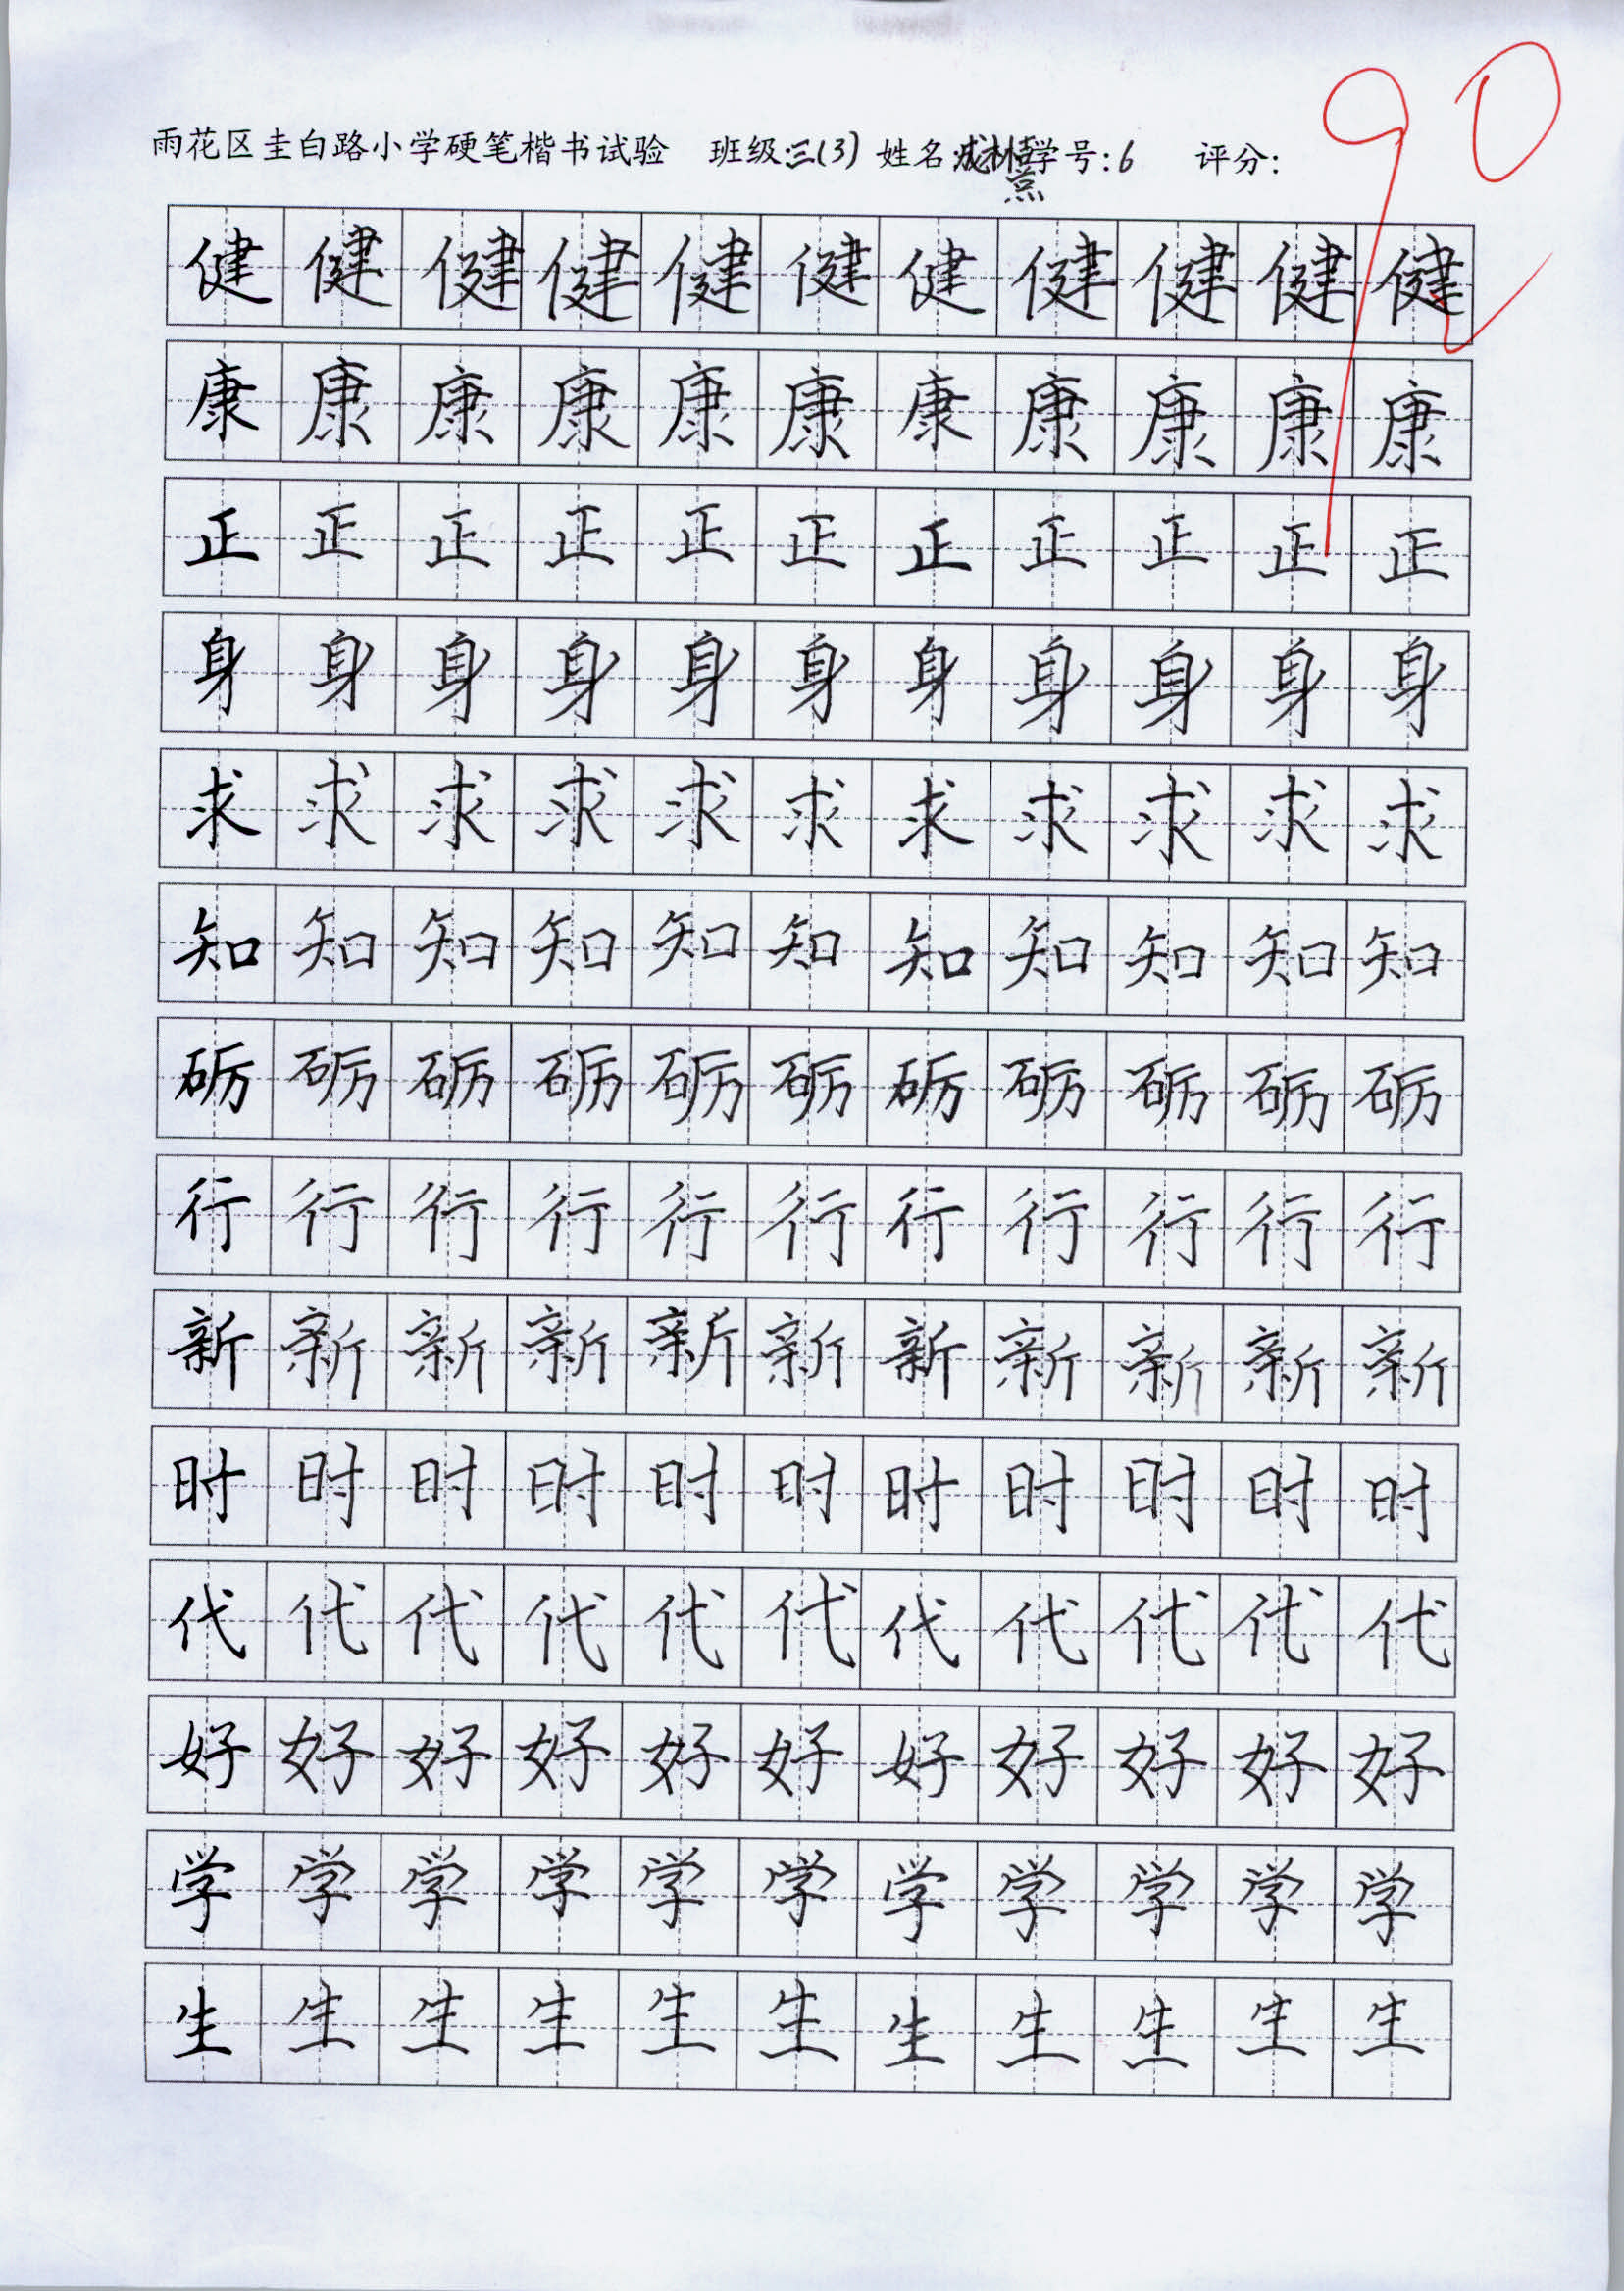 雨花区圭白路小学硬笔楷书试验 班级:三(3) 姓名:成林熹 学号:6 评分: 90
健健健健健健健健健健健
康康康康康康康康康康康
正正正正正正正正正正正
身身身身身身身身身身身
求求求求求求求求求求求
知知知知知知知知知知知
砺砺砺砺砺砺砺砺砺砺砺
行行行行行行行行行行行
新新新新新新新新新新新
时时时时时时时时时时时
代代代代代代代代代代代
好好好好好好好好好好好
学学学学学学学学学学学
生生生生生生生生生生生